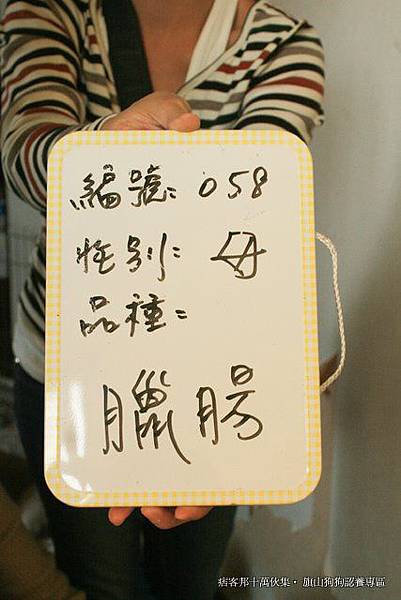 編號: 058
性别: 母
品種:
臘腸
痞客邦十萬伙集・旗山狗狗認養專區